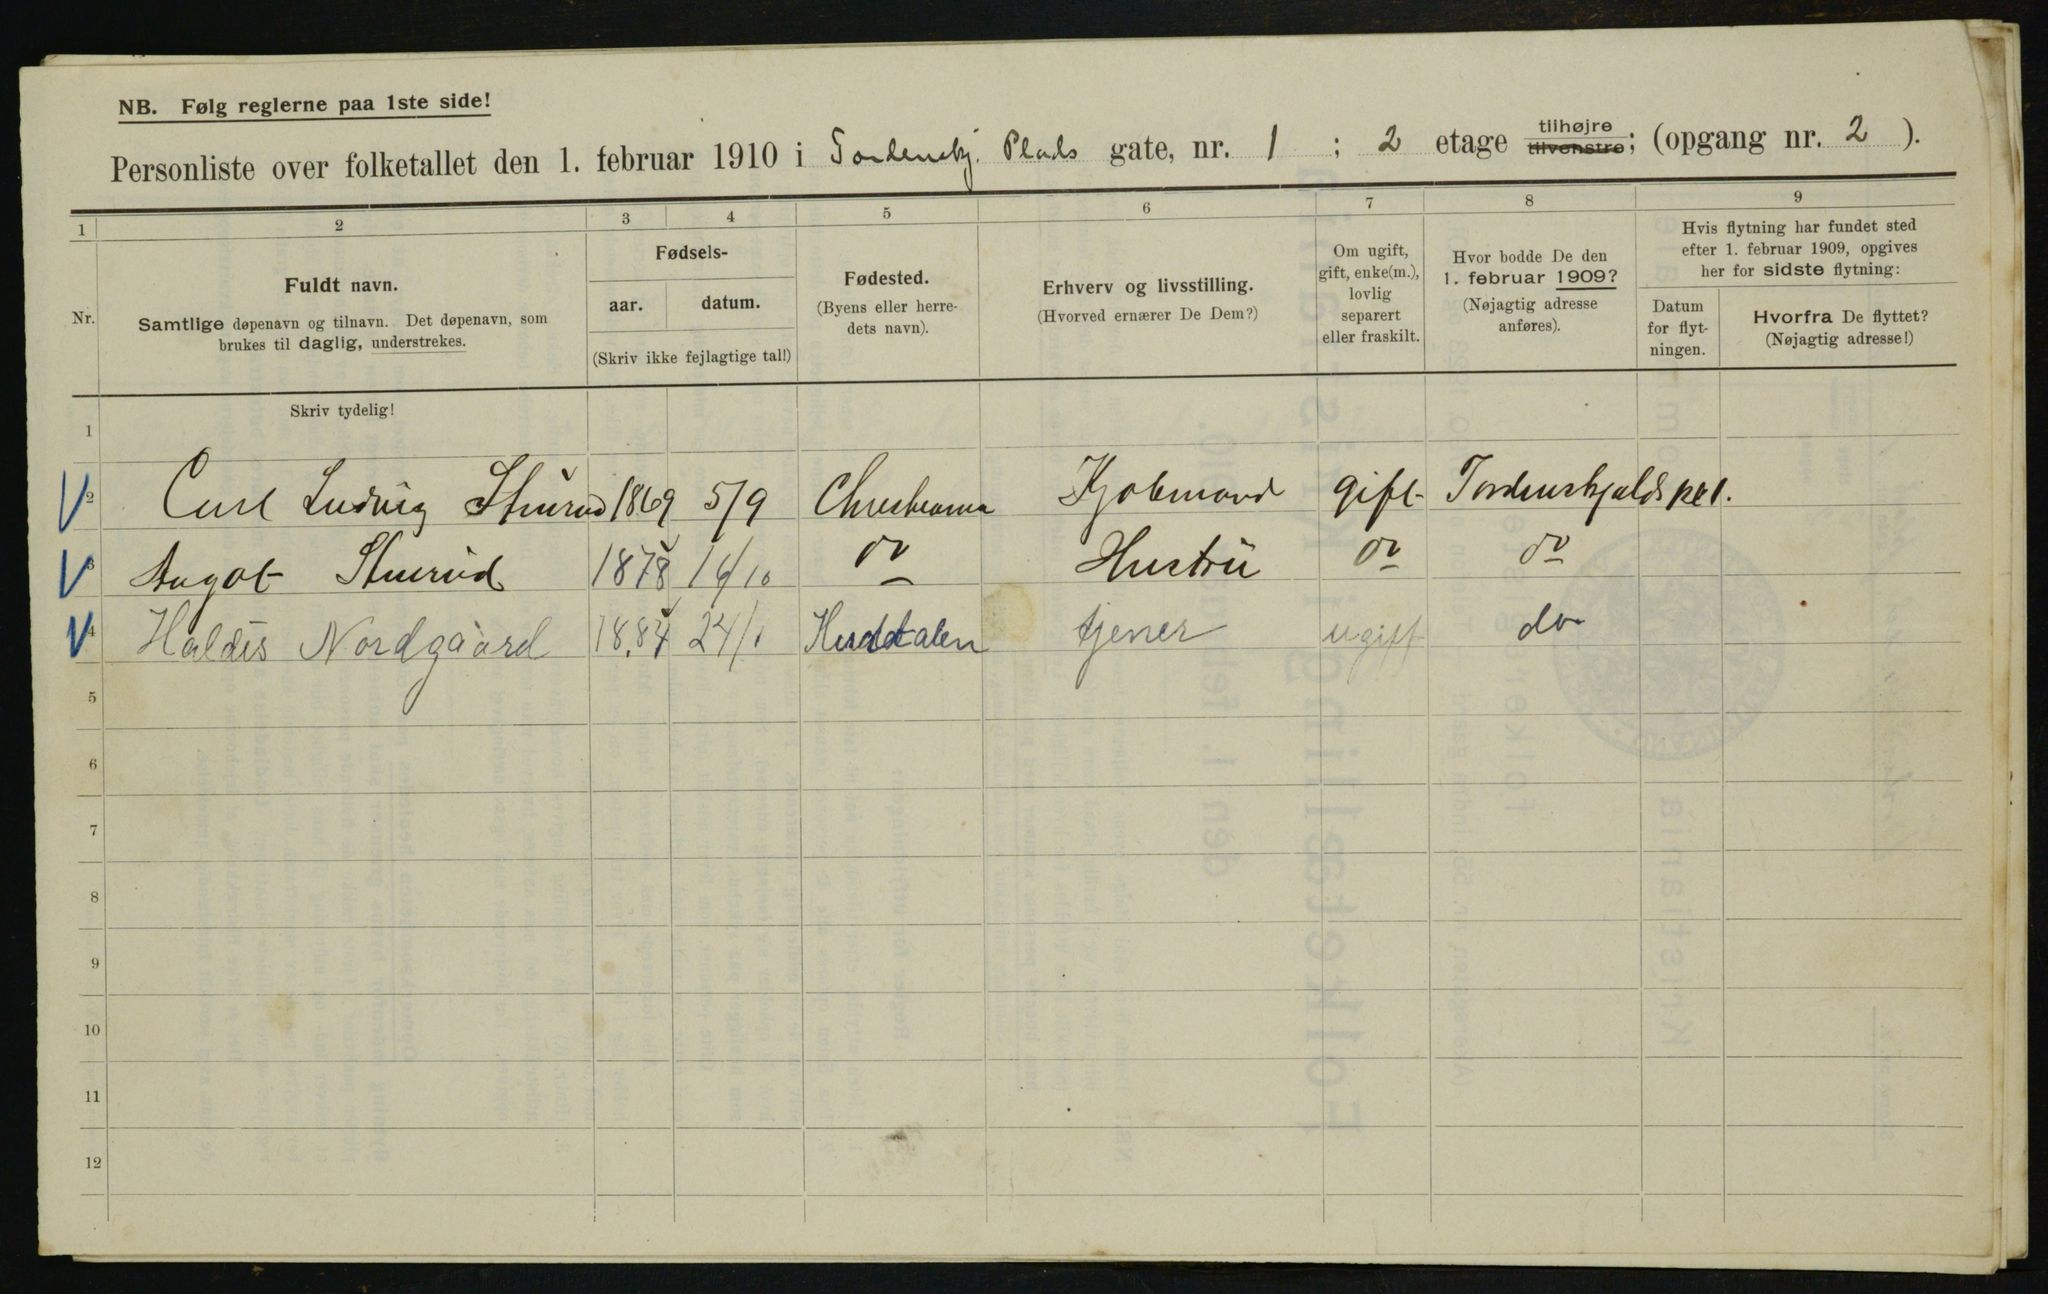 NB. Følg reglerne paa 1ste side!
Personliste over folketallet den 1. februar 1910 i Tordenskj. Plads gate, nr. 1 ; 2 etage tilhøjre tilvenstre; (opgang nr. 2 ).
1 2 3 4 5 6 7 8 9
Nr.
Fuldt navn.
Samtlige døpenavn og tilnavn. Det døpenavn, som
brukes til daglig, understrekes.
Fødsels-
aar. datum.
(Skriv ikke fejlagtige tal!)
Fødested.
(Byens eller herre-
dets navn).
Erhverv og livsstilling.
(Hvorved ernærer De Dem?)
Om ugift,
gift, enke(m.),
lovlig
separert
eller fraskilt.
Hvor bodde De den
1. februar 1909?
(Nøjagtig adresse
anføres).
Hvis flytning har fundet sted
efter 1. februar 1909, opgives
her for sidste flytning:
Datum
for flyt-
ningen.
Hvorfra De flyttet?
(Nøjagtig adresse!)
Skriv tydelig!
1
2 Carl Ludvig 1869 5/9 Christiania Kjøbmand gift Tordenskjolds pl 1.
3 Aagot 1878 16/10 do Hustru do do
4 Haldis Nordgaard 1884 24/1 Hurdalen tjener ugift do
5
6
7
8
9
10
11
12